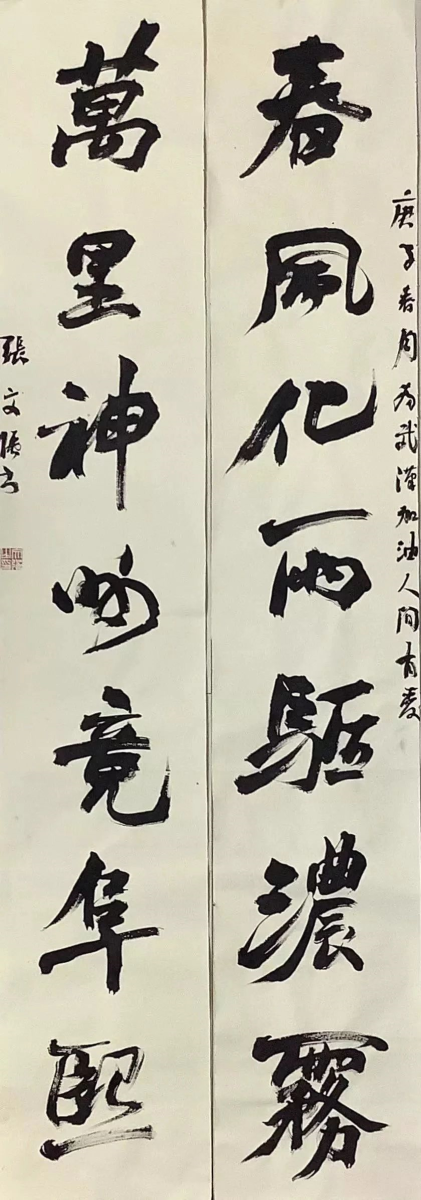 春風化雨驅濃霧
庚子春月為武漢加油人间有愛
萬里神州竟阜熙
張文張书